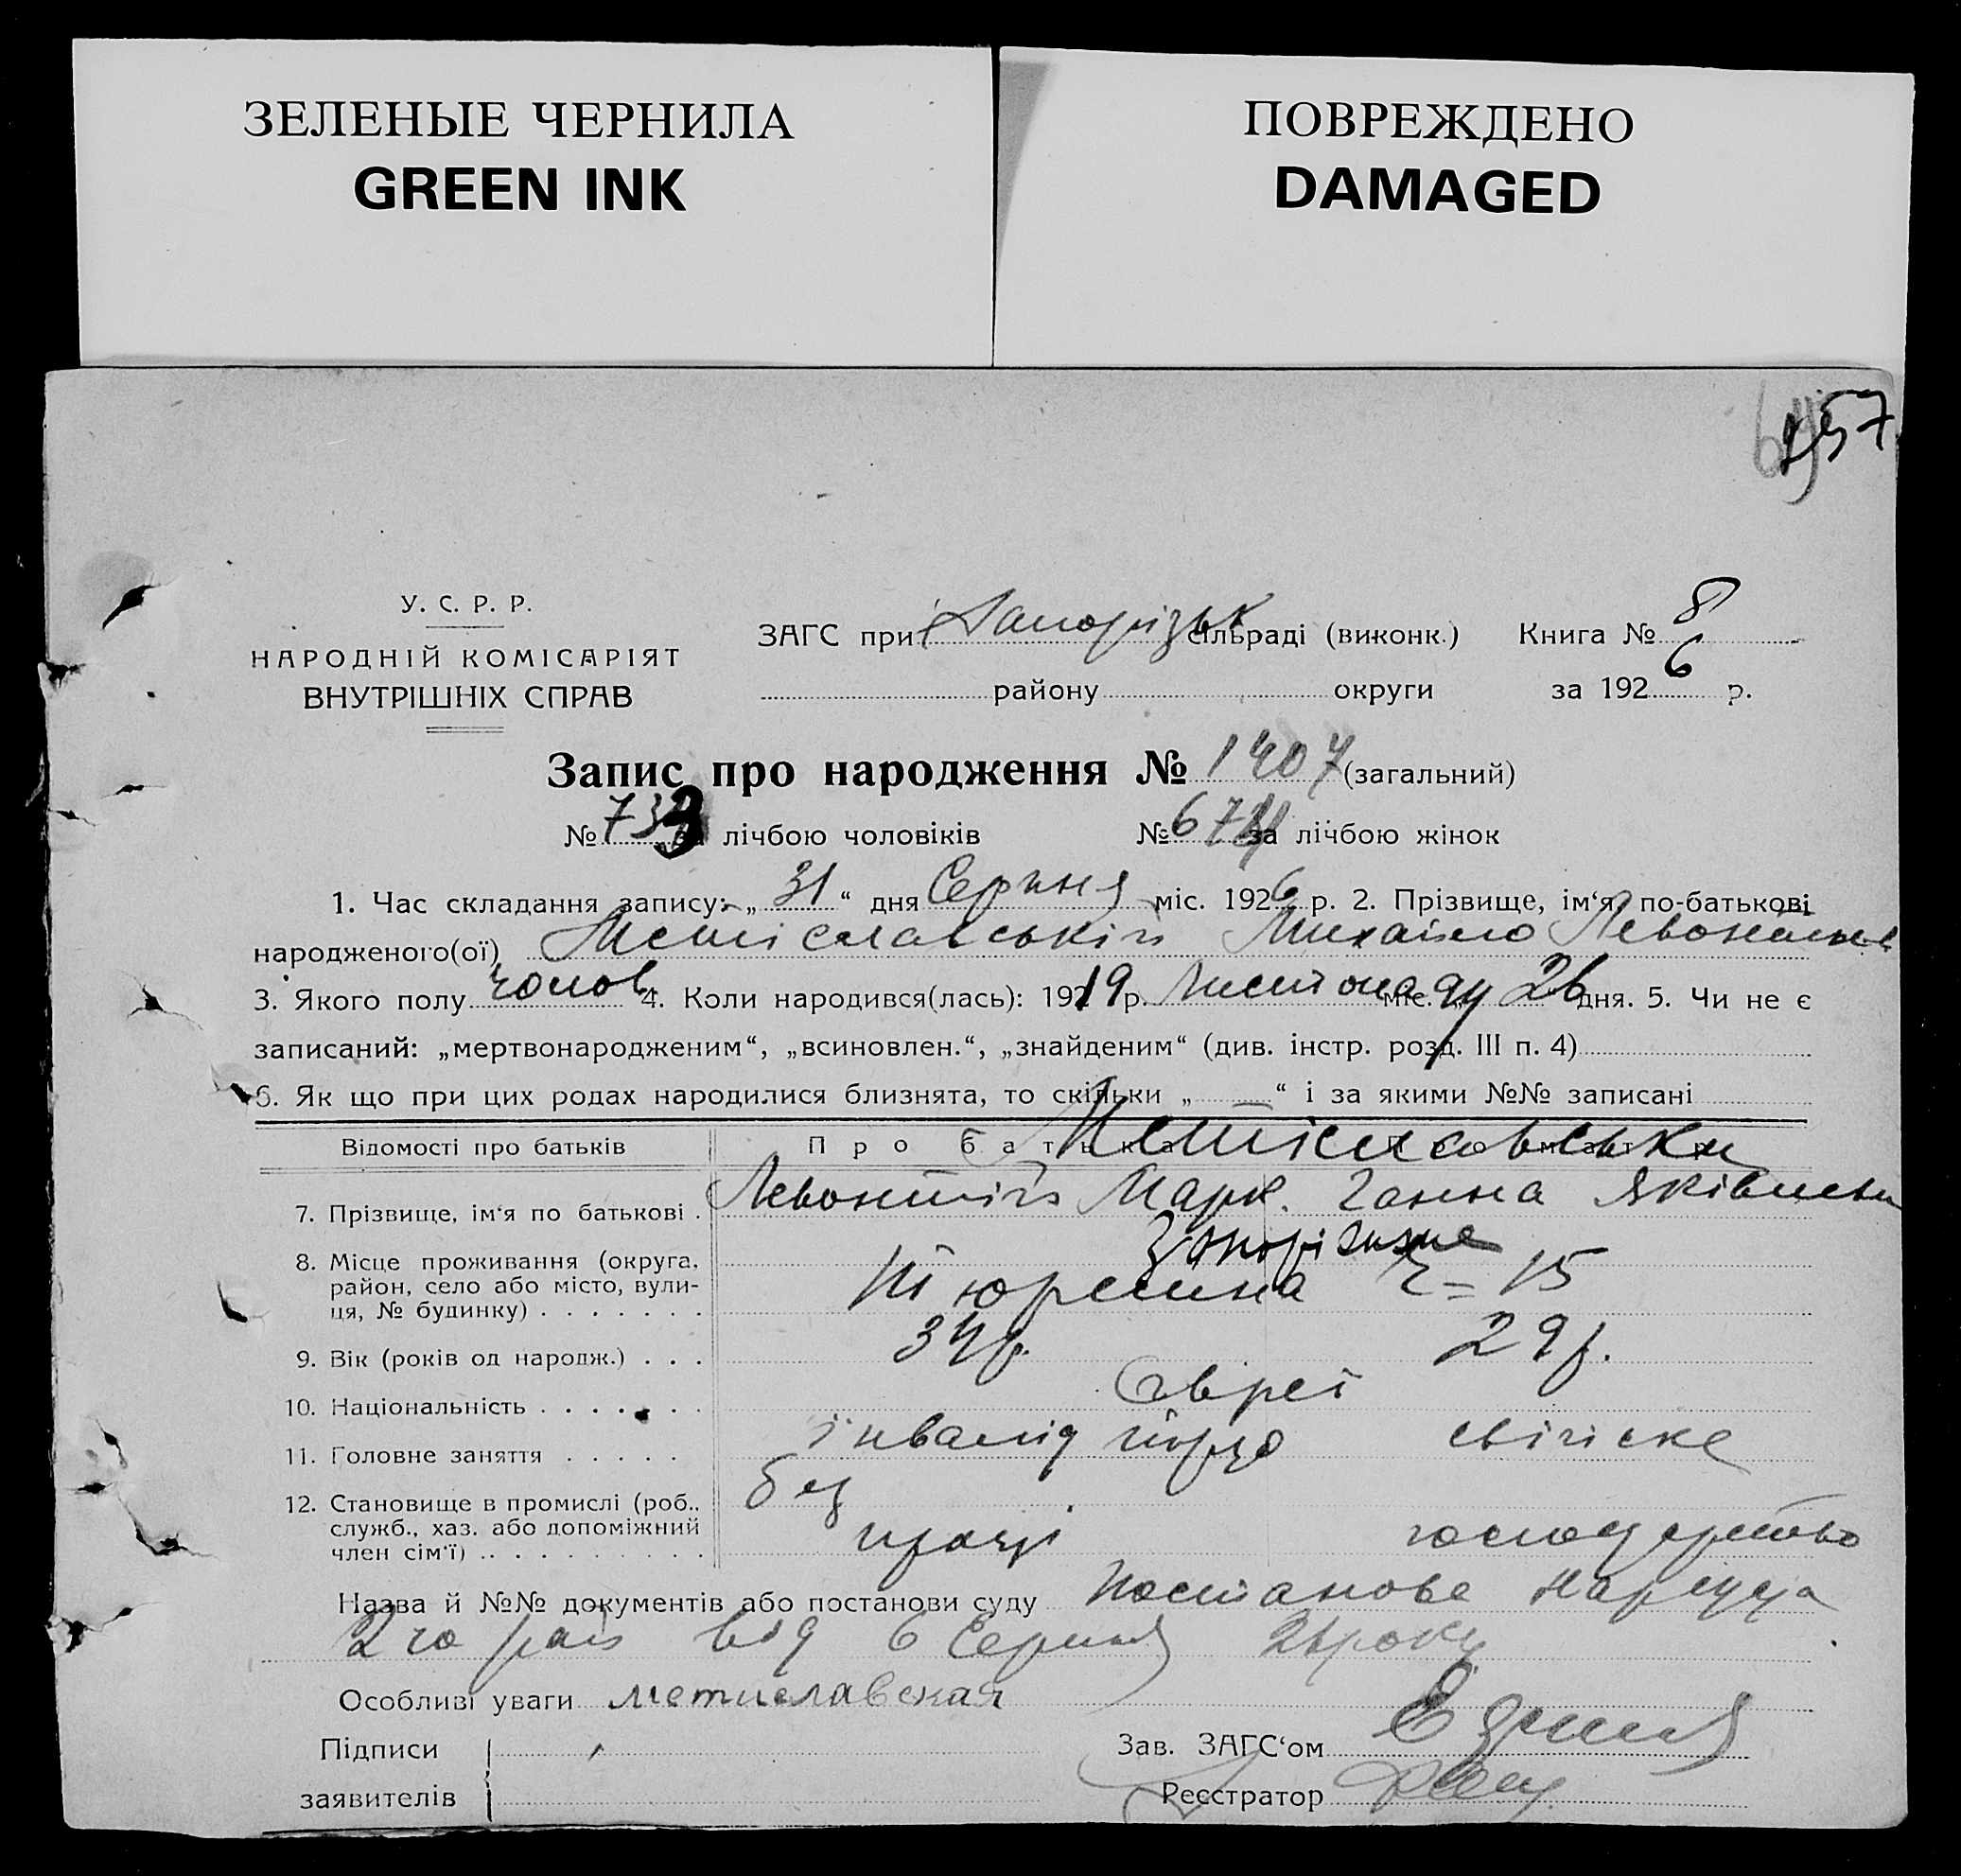 ЗЕЛЕНЫЕ ЧЕРНИЛА
GREEN INK
ПОВРЕЖДЕНО
DAMAGED
157
У. С. Р. Р.
НАРОДНІЙ КОМІСАРІЯТ
ВНУТРІШНІХ СПРАВ
ЗАГС при Запорізьк сільраді (виконк.) Книга № 8
району округи за 1926 р.
Запис про народження № 1407 (загальний)
№ 733 за лічбою чоловіків № 674 за лічбою жінок
1. Час складання запису: „31“ дня Серпня міс. 1926 р. 2. Прізвище, ім‘я, по-батькові
народженого(ої) Мстіславський Михайло
3. Якого полу чолов 4. Коли народився(лась): 1919 р. Листопаду міс. 26 дня. 5. Чи не є
записаний: „мертвонародженим“, „всиновлен.“, „знайденим“ (див. інстр. розд. III п. 4)
6. Як що при цих родах народилися близнята, то скільки „—“ і за якими №№ записані
Відомості про батьків Про батька Мстіславськи
7. Прізвище, ім‘я по батькові . Левонтій Марк. Ганна Яківнівна
8. Місце проживання (округа, Запоріжжя
район, село або місто, вули- 15
ця, № будинку)
9. Вік (років од народж.) . . . 34 р. 29 р.
10. Національність . . . . . . Євреї
11. Головне заняття . . . . . інвалід хатнє
12. Становище в промислі (роб., без
служб., хаз. або допоміжний праці господарство
член сім‘ї)
Назва й №№ документів або постанови суду Постанова Нарсуда
2го рай від 6 Серпня 26 року
Особливі уваги мстиславская
Підписи Зав. ЗАГС‘ом
заявителів Реєстратор